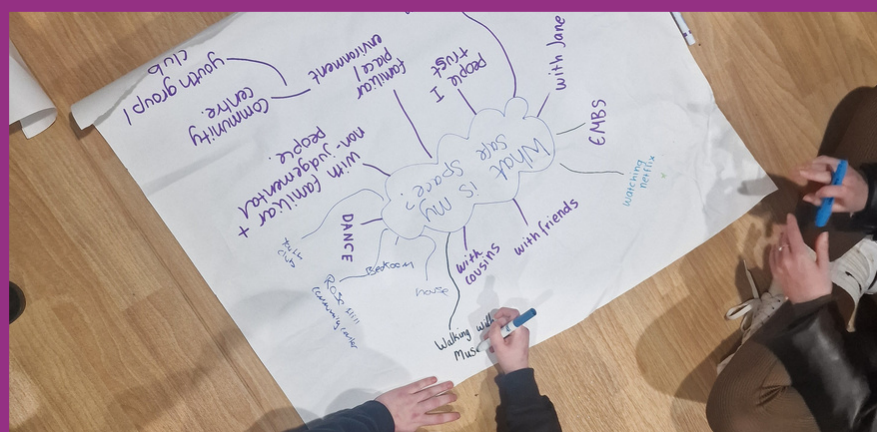 What is my
safe space?
with Jane
EMBS
watching
netflix
with friends
with
cousins
Walking with
Mus
house
bedroom
Rose Hill
community center
youth
club
DANCE
with familiar +
non-judgemental
people.
familiar
place/
environment
community
centre
youth group/
club
people I
trust